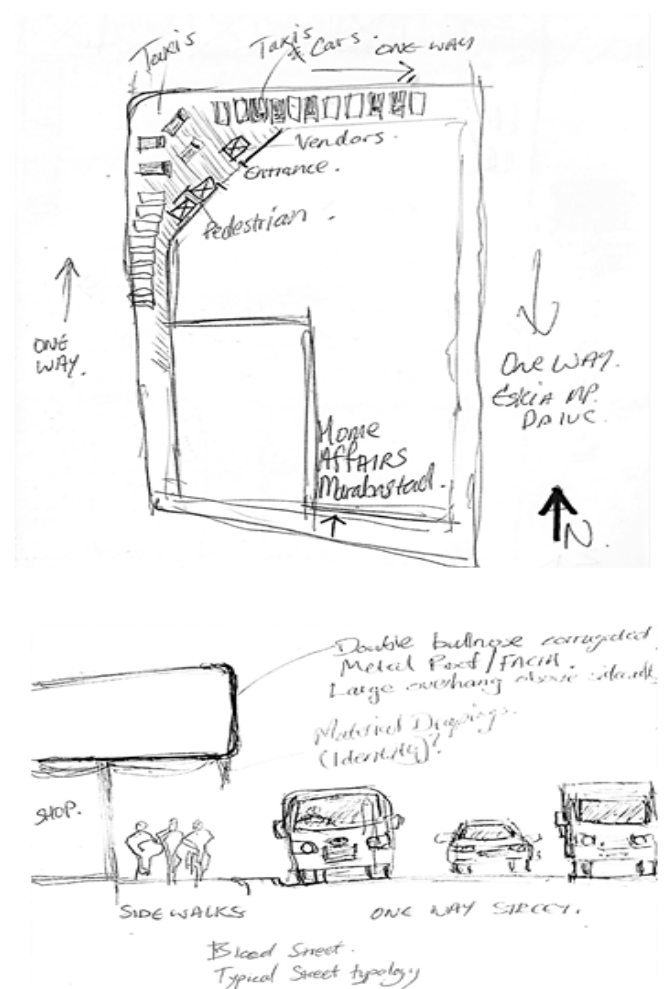 Taxis
Taxis
& Cars.
ONE WAY
Vendors.
Entrance.
Pedestrian.
ONE
WAY.
One WAY.
ESKIA MP.
DRIVE.
Home
AffAIRS
Marabastad.
N.
Double bullnose corrugated
Metal Roof/FACIA.
Large overhang above sidewalk
Material Drapings.
(Identity)?
SHOP.
SIDEWALKS
ONE WAY STREET.
Bloed Street.
Typical Street typology